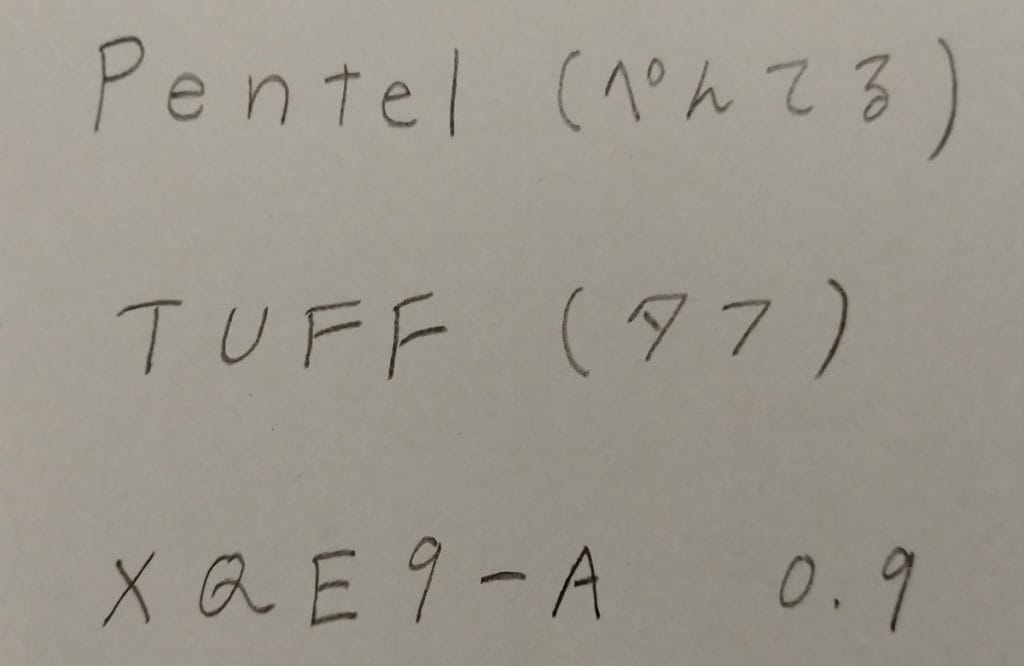 Pentel (ぺんてる)
TUFF (タフ)
XQE9-A 0.9